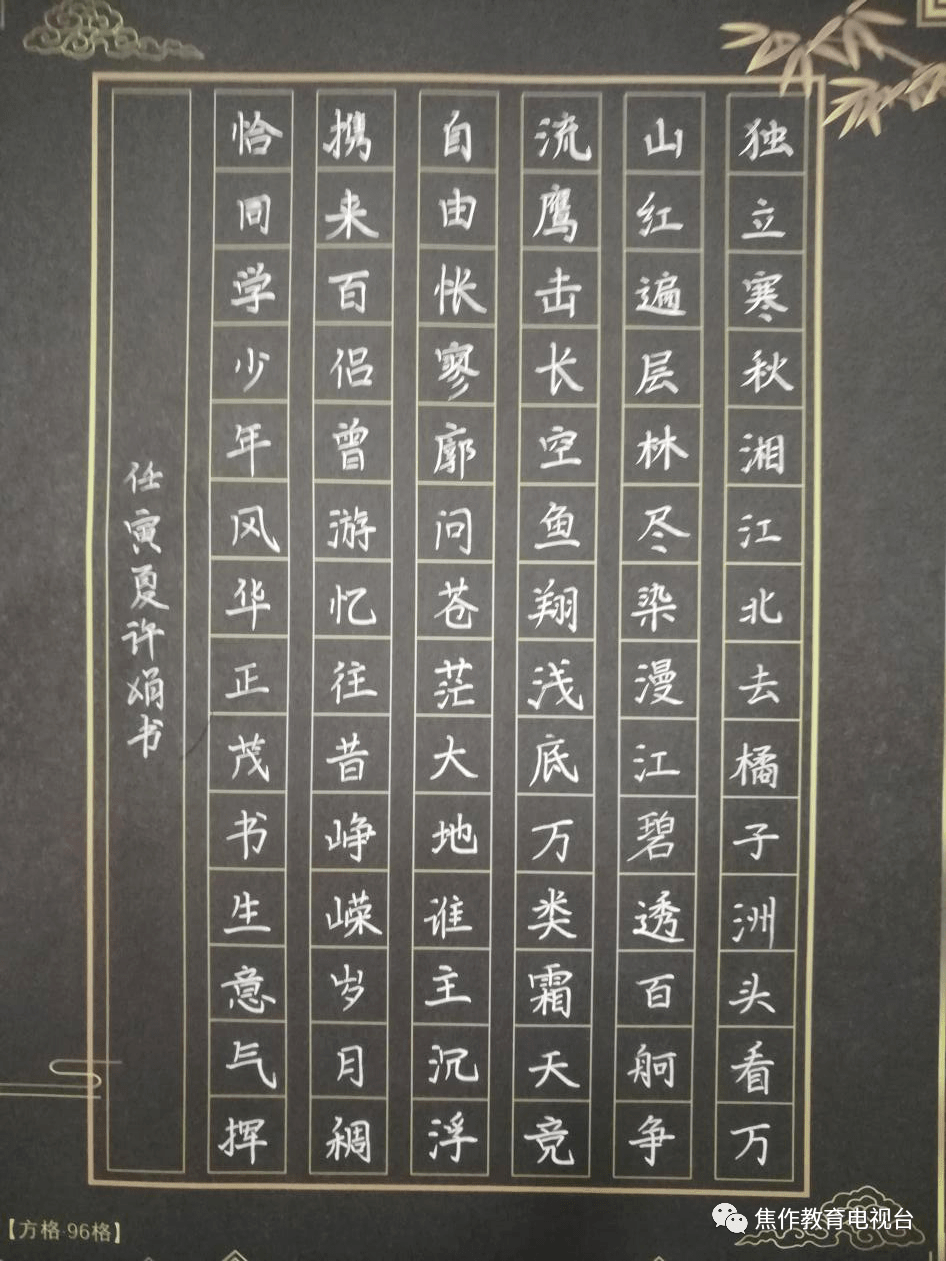 独立寒秋湘江北去橘子洲头看万
山红遍层林尽染漫江碧透百舸争
流鹰击长空鱼翔浅底万类霜天竞
自由怅寥廓问苍茫大地谁主沉浮
携来百侣曾游忆往昔峥嵘岁月稠
恰同学少年风华正茂书生意气挥
任寅夏许娟书
【方格·96格】
焦作教育电视台